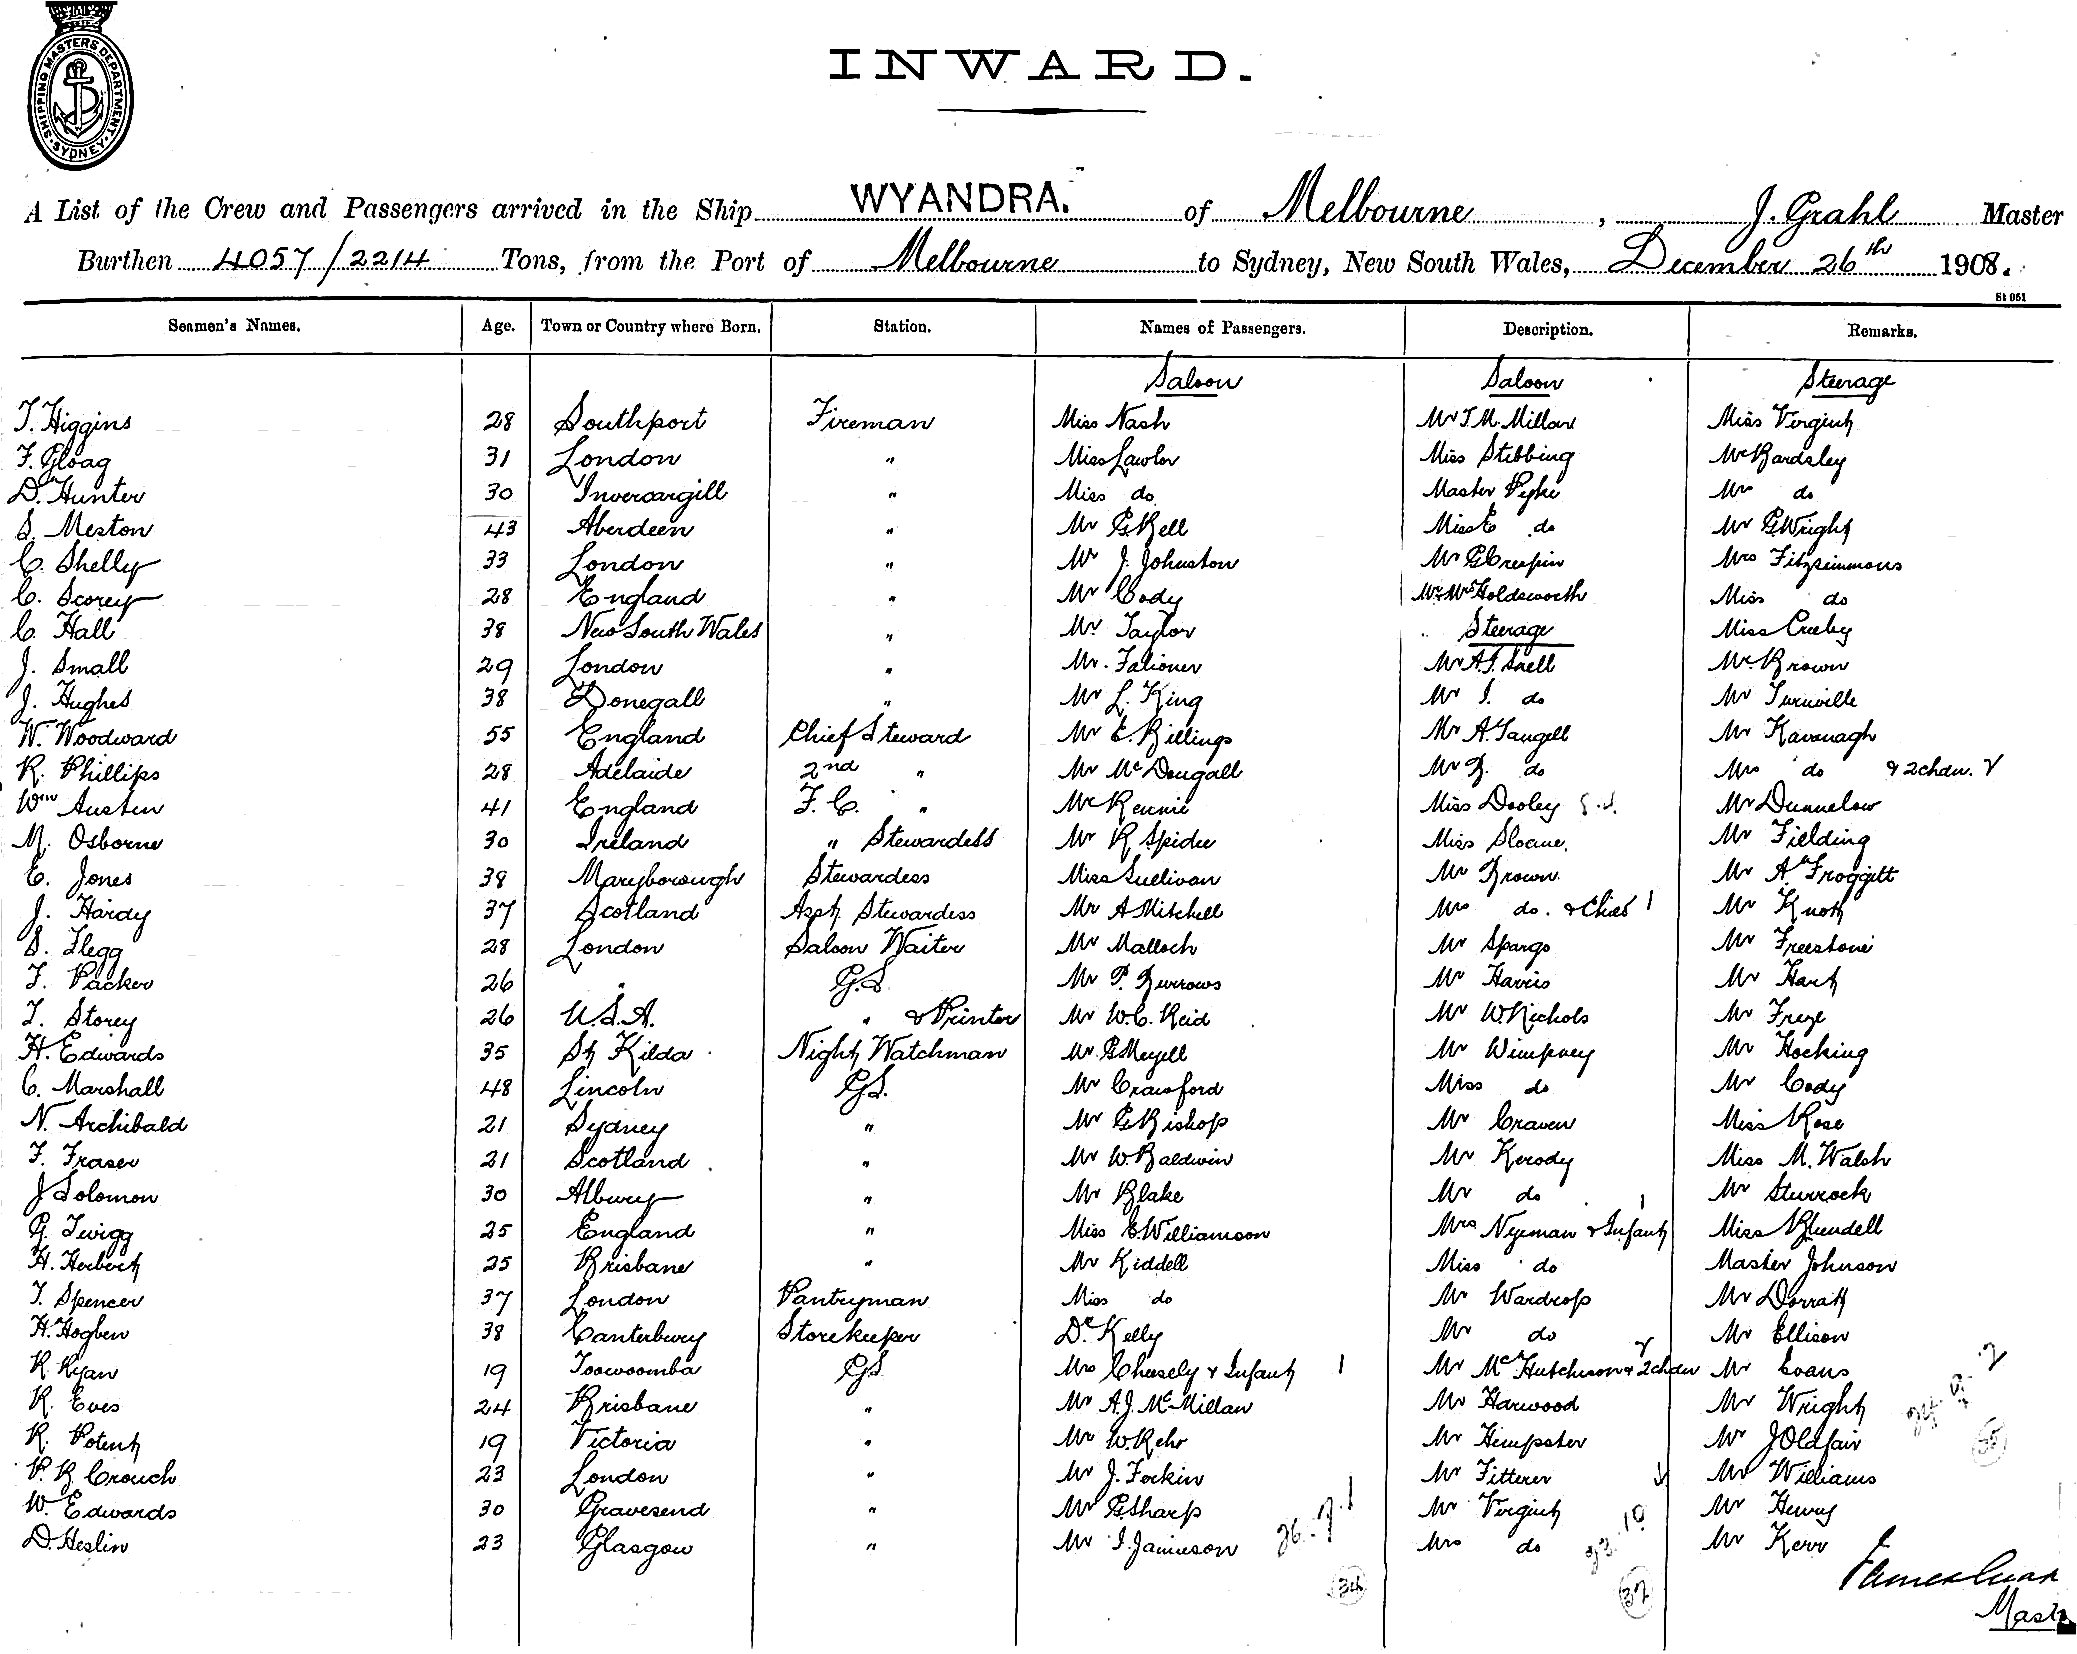 SHIPPING MASTERS DEPARTMENT. SYDNEY
INWARD.
A List of the Crew and Passengers arrived in the Ship WYANDRA. of Melbourne, J. Grahl Master
Burthen 4057/2214 Tons, from the Port of Melbourne to Sydney, New South Wales, December 26th 1908.
St 051
Seamen's Names. Age. Town or Country where Born. Station. Names of Passengers. Description. Remarks.
Saloon Saloon Steerage
T. Higgins 28 Southport Fireman Miss Nash Mr T.M. Millar Miss Virgint
F. Gloag 31 London " Miss Lawlor Miss Stebbing Mr Bardsley
D. Hunter 30 Invercargill " Miss do Master Pyke Mrs do
S. Meston 43 Aberdeen " Mr G. Bell Miss E do Mr G Wright
C. Shelly 33 London " Mr J. Johnston Mr G Crespin Mrs Fitzsimmons
C. Scorey 28 England " Mr Cody Mr & Mrs Holdsworth Miss do
C. Hall 38 New South Wales " Mr Taylor Steerage Miss Creeby
J. Small 29 London " Mr. Falioner Mr A.J. Snell Mr Brown
J. Hughes 38 Donegall " Mr L. King Mr J. do Mr Turnville
W. Woodward 55 England Chief Steward Mr E. Billings Mr A Taugell Mr Kavanagh
R. Phillips 28 Adelaide 2nd " Mr McDougall Mr B. do Mrs do & 2 chdn. 2
Wm Austin 41 England F.C. " Mr Rennie Miss Dooley Mr Dunnelow
M. Osborne 30 Ireland " Stewardess Mr R Spider Miss Sloane. Mr Fielding
E. Jones 38 Maryborough Stewardess Miss Sullivan Mr Brown. Mr A Froggitt
J. Hardy 37 Scotland Asst Stewardess Mr A Mitchell Mrs do. & Child 1 Mr Knott
S. Flegg 28 London Saloon Waiter Mr Malloch Mr Spargo Mr Freestone
F. Packer 26 " G.S. Mr P. Burrows Mr Harris Mr Hart
T. Storey 26 U.S.A. " & Printer Mr W.C. Reid Mr W Nichols Mr Freze
H. Edwards 35 St Kilda Night Watchman Mr. G Meyell Mr Wimpney Mr Hocking
C. Marshall 48 Lincoln G.S. Mr Crawford Miss do Mr Cody
N. Archibald 21 Sydney " Mr G Bishop Mr Craven Miss Rose
F. Fraser 21 Scotland " Mr W. Baldwin Mr Kerody Miss M. Walsh
J Solomon 30 Albury " Mr Blake Mr do Mr Sturrock
G. Twigg 25 England " Miss E. Williamson Mrs Nyeman & Infant 1 Miss Blundell
H. Herbert 25 Brisbane " Mr Kiddell Miss do Master Johnson
T. Spencer 37 London Pantryman Miss do Mr Wardrop Mr Dorratt
H. Hogben 38 Canterbury Storekeeper Dr Kelly Mr do Mr Ellison
R Ryan 19 Toowoomba G.S. Mrs Cheesely & Infant 1 Mr McHutchison & 2 chdn 2 Mr Evans
R. Eves 24 Brisbane " Mr A.J. McMillan Mr Harwood Mr Wright
R. Potent 19 Victoria " Mr W. Rehr Mr Hempster Mr J Oldfair
P. B. Crouch 23 London " Mr J. Forkin Mr Fitterer Mr Williams
W. Edwards 30 Gravesend " Mr G Sharp Mr Virgint Mr Henry
D. Heslin 23 Glasgow " Mr J. Jamieson Mrs do Mr Kerr
34 37
Master